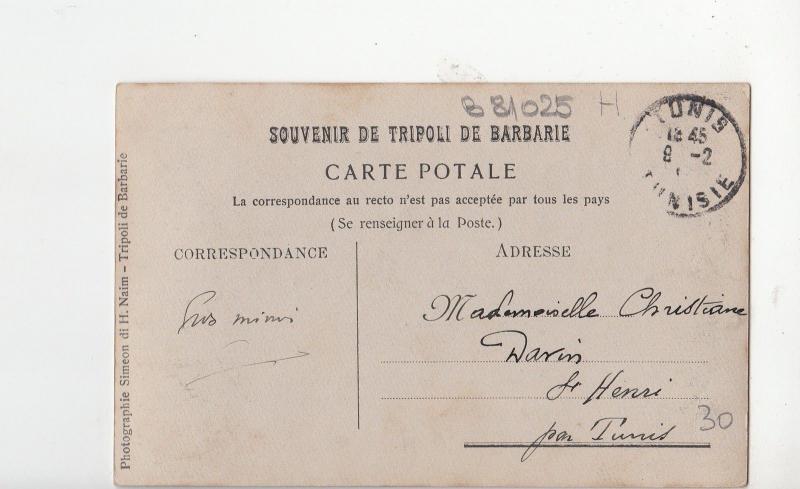 B 81025 H
SOUVENIR DE TRIPOLI DE BARBARIE
CARTE POTALE
La correspondance au recto n'est pas acceptée par tous les pays
(Se renseigner à la Poste.)
TUNIS
18 45
9 -2
TUNISIE
CORRESPONDANCE
ADRESSE
Mademoiselle Christiane
Darin
St Henri
par Tunis
30
Photographie Simeon di H. Naim – Tripoli de Barbarie